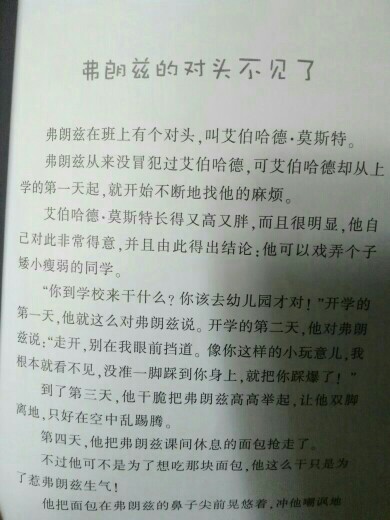 弗朗兹的对头不见了
弗朗兹在班上有个对头，叫艾伯哈德·莫斯特。
弗朗兹从来没冒犯过艾伯哈德，可艾伯哈德却从上
学的第一天起，就开始不断地找他的麻烦。
艾伯哈德·莫斯特长得又高又胖，而且很明显，他自
己对此非常得意，并且由此得出结论：他可以戏弄个子
矮小瘦弱的同学。
“你到学校来干什么？你该去幼儿园才对！”开学的
第一天，他就这么对弗朗兹说。开学的第二天，他对弗朗
兹说：“走开，别在我眼前挡道。像你这样的小玩意儿，我
根本就看不见，没准一脚踩到你身上，就把你踩爆了！”
到了第三天，他干脆把弗朗兹高高举起，让他双脚
离地，只好在空中乱踢腾。
第四天，他把弗朗兹课间休息的面包抢走了。
不过他可不是为了想吃那块面包，他这么干只是为
了惹弗朗兹生气！
他把面包在弗朗兹的鼻子尖前晃悠着，冲他嘲讽地